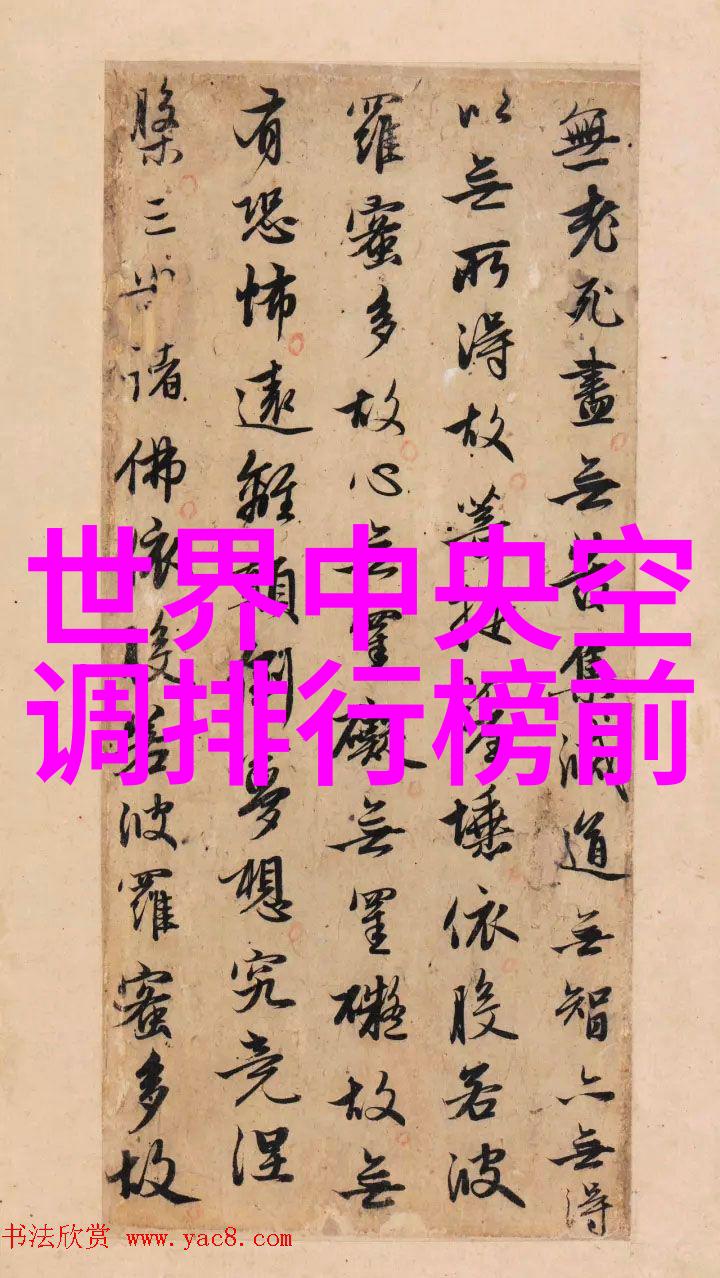 無老死盡無苦集滅道無智亦無得
以無所得故菩提薩埵依般若波
羅蜜多故心無罣礙無罣礙故無
有恐怖遠離顛倒夢想究竟涅
槃三世諸佛依般若波羅蜜多故
世界中央空
调排行榜前
书法欣赏 www.yac8.com